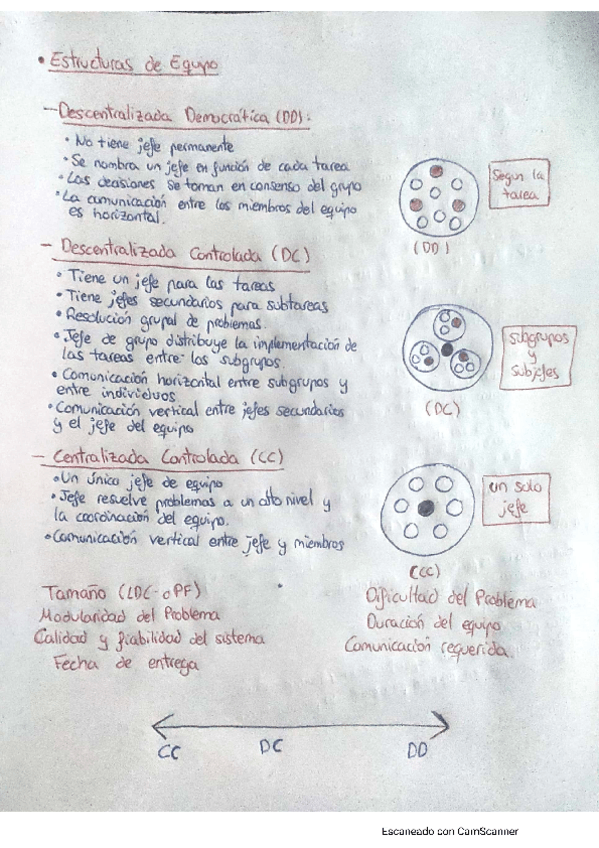 • Estructuras de Equipo
- Descentralizada Democrática (DD):
• No tiene jefe permanente
• Se nombra un jefe en función de cada tarea
• Las decisiones se toman en consenso del grupo
• La comunicación entre los miembros del equipo
es horizontal.
Segun la
tarea
(DD)
- Descentralizada Controlada (DC)
• Tiene un jefe para las tareas
• Tiene jefes secundarios para subtareas
• Resolución grupal de problemas.
• Jefe de grupo distribuye la implementación de
las tareas entre los subgrupos
• Comunicación horizontal entre subgrupos y
entre individuos
• Comunicación vertical entre jefes secundarios
y el jefe del equipo
subgrupos
y
subjefes
(DC)
- Centralizada Controlada (CC)
• Un único jefe de equipo
• Jefe resuelve problemas a un alto nivel y
la coordinación del equipo.
• Comunicación vertical entre jefe y miembros
un solo
jefe
(CC)
Tamaño (LDC o PF)
Modularidad del Problema
Calidad y fiabilidad del sistema
Fecha de entrega
Dificultad del Problema
Duración del equipo
Comunicación requerida
CC DC DD
Escaneado con CamScanner